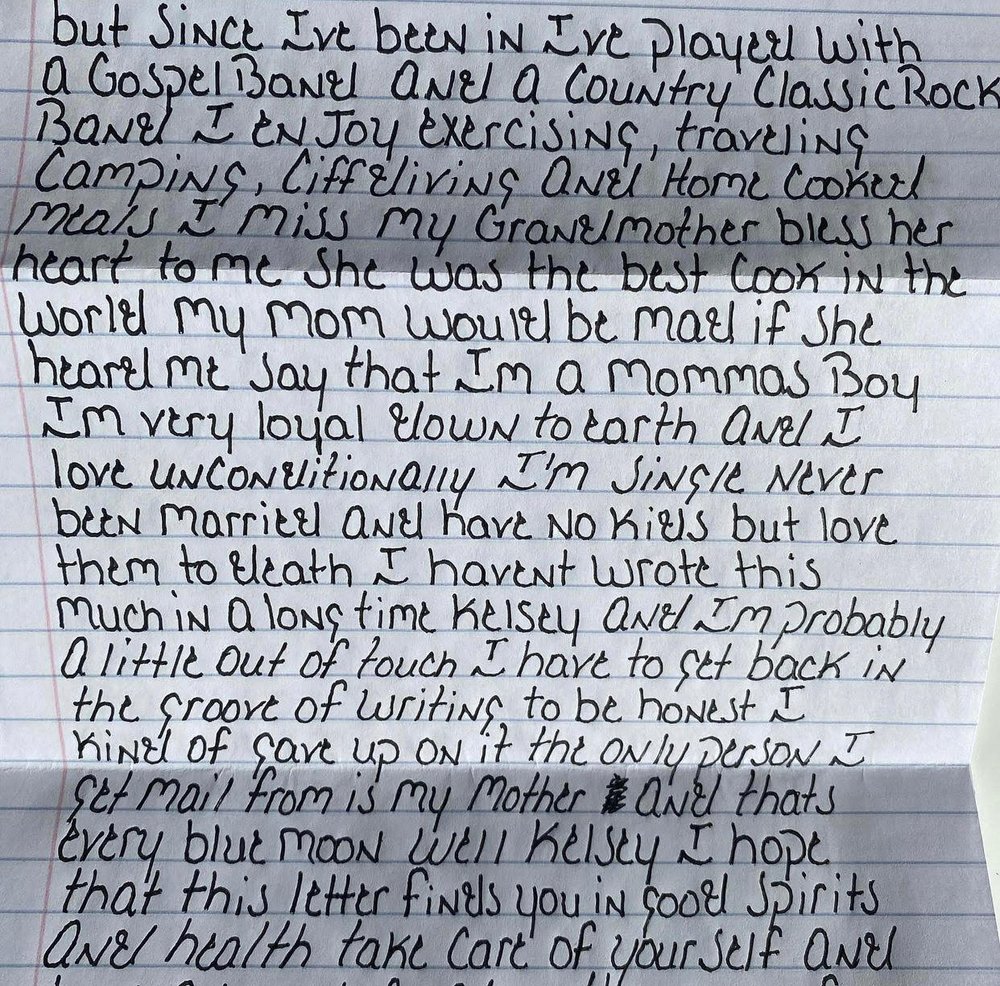 but Since Ive been in Ive played with
a Gospel Band and a Country Classic Rock
Band I enjoy exercising, traveling
Camping, Cliffdiving and Home Cooked
meals I miss my Grandmother bless her
heart to me she was the best Cook in the
World my mom would be mad if she
heard me say that Im a mommas Boy
Im very loyal down to earth and I
love unconditionally I'm single never
been married and have no kids but love
them to death I havent wrote this
much in a long time Kelsey and Im probably
a little out of touch I have to get back in
the groove of writing to be honest I
kind of gave up on it the only person I
get mail from is my Mother and thats
every blue moon well Kelsey I hope
that this letter finds you in good spirits
and health take care of yourself and